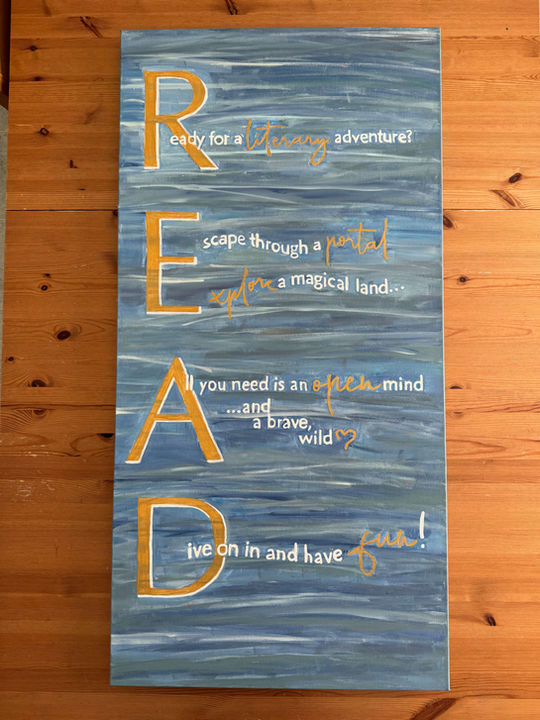 Ready for a literary adventure?
Escape through a portal
xplore a magical land...
All you need is an open mind
...and
a brave,
wild
Dive on in and have fun!